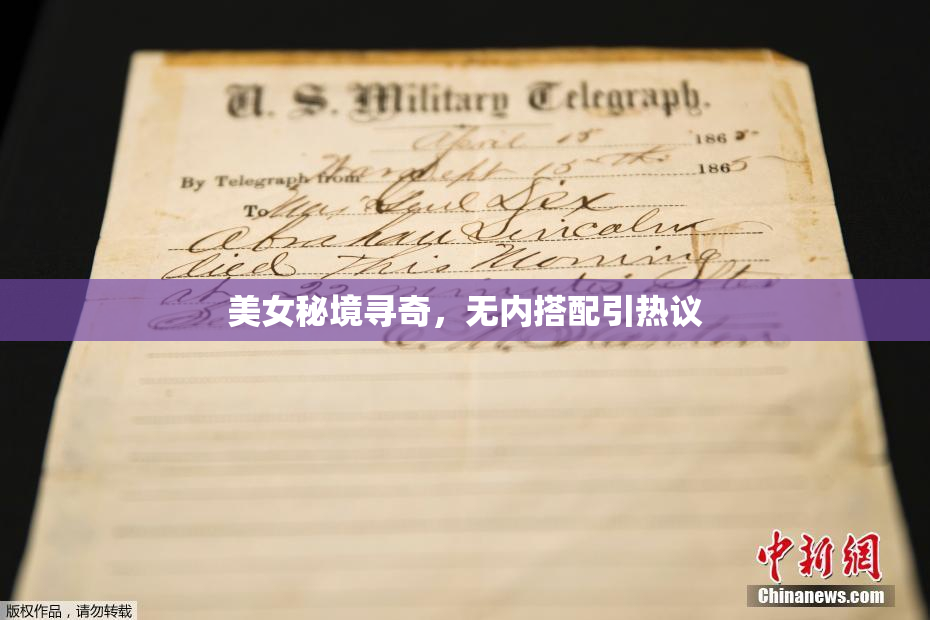 U. S. Military Telegraph.
April 15 1865
By Telegraph from War Dept 15th 1865
To Maj Genl Dix
Abraham Lincoln
died This Morning
at 22 minutes after
美女秘境寻奇，无内搭配引热议
E. M. Stanton
中新网
Chinanews.com
版权作品，请勿转载